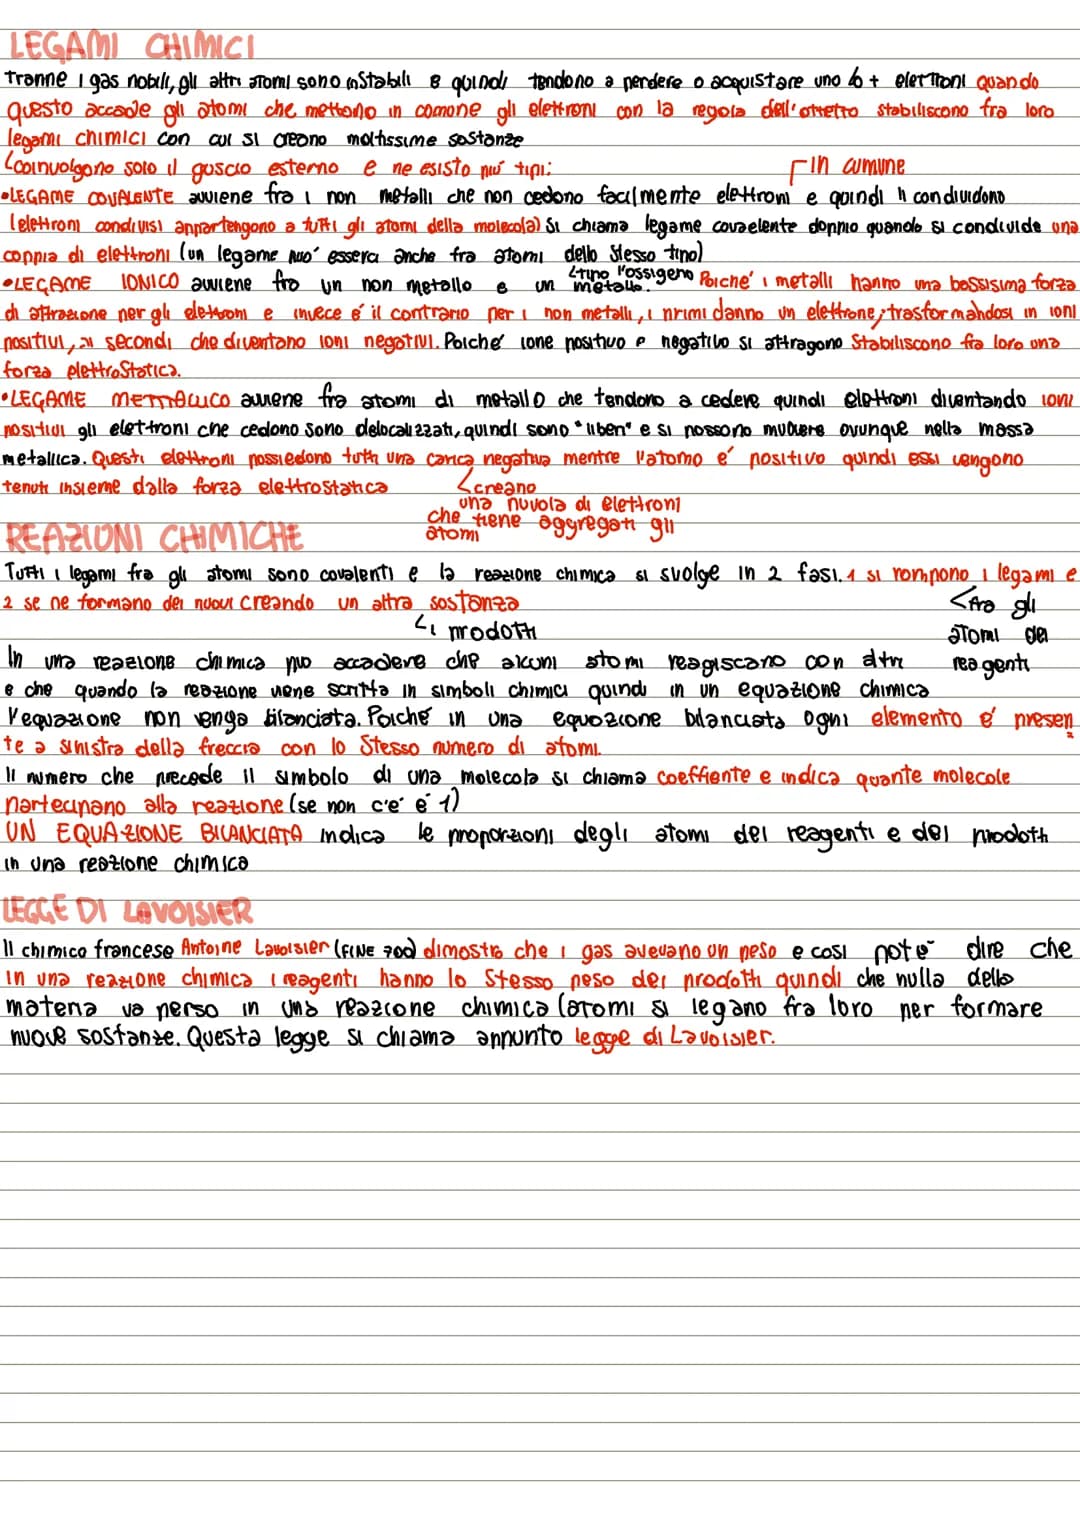 LEGAMI CHIMICI
Tranne i gas nobili, gli altri atomi sono instabili e quindi tendono a perdere o acquistare uno o + elettroni Quando
questo accade gli atomi che mettono in comone gli elettroni con la regola dell'ottetto stabiliscono fra loro
legami chimici con cui si creano moltissime sostanze
coinvolgono solo il guscio esterno e ne esisto più tipi:
in cumune
•LEGAME COVALENTE avviene fra i non metalli che non cedono facilmente elettroni e quindi li condividono
(elettroni condivisi appartengono a tutti gli atomi della molecola) Si chiama legame covaelente doppio quando si condivide una
coppia di elettroni (un legame puo' essera anche fra atomi dello stesso tipo)
tipo l'ossigeno
•LEGAME IONICO avviene fro un non metallo e un metallo. Poiche' i metalli hanno una bassisima forza
di attrazione per gli elettroni e invece e' il contrario per i non metalli, i primi danno un elettrone, trasformandosi in ioni
positivi, ai secondi che diventano ioni negativi. Poiche' ione positivo e negativo si attragono Stabiliscono fra loro una
forza elettroStatica.
•LEGAME METTALLICO avviene fra atomi di metallo che tendono a cedere quindi elettroni diventando ioni
positivi gli elettroni che cedono sono delocalizzati, quindi sono "liberi" e si possono muovere ovunque nella massa
metallica. Questi elettroni possiedono tutti una carica negativa mentre l'atomo e' positivo quindi essi vengono
tenuti insieme dalla forza elettrostatica
creano
una nuvola di elettroni
che tiene aggregati gli
atomi
REAZIONI CHIMICHE
Tutti i legami fra gli atomi sono covalenti e la reazione chimica si svolge in 2 fasi. 1 si rompono i legami e
2 se ne formano dei nuovi creando un altra sostanza
fra gli
atomi dei
reagenti
i prodotti
In una reazione chimica può accadere che alcuni atomi reagiscano con altri
e che quando la reazione viene scritta in simboli chimici quindi in un equazione chimica
l'equazione non venga bilanciata. Poiché in una equazione bilanciata ogni elemento e' presen
te a sinistra della freccia con lo stesso numero di atomi.
Il numero che precede il simbolo di una molecola si chiama coeffiente e indica quante molecole
partecipano alla reazione (se non c'e' e' 1)
UN EQUAZIONE BILANCIATA indica le proporzioni degli atomi dei reagenti e dei prodotti
in una reazione chimica
LEGGE DI LAVOISIER
Il chimico francese Antoine Lavoisier (FINE 700) dimostra che i gas avevano un peso e cosi potè dire che
in una reazione chimica i reagenti hanno lo stesso peso dei prodotti quindi che nulla della
materia va perso in una reazione chimica (atomi si legano fra loro per formare
nuove sostanze. Questa legge si chiama appunto legge di Lavoisier.